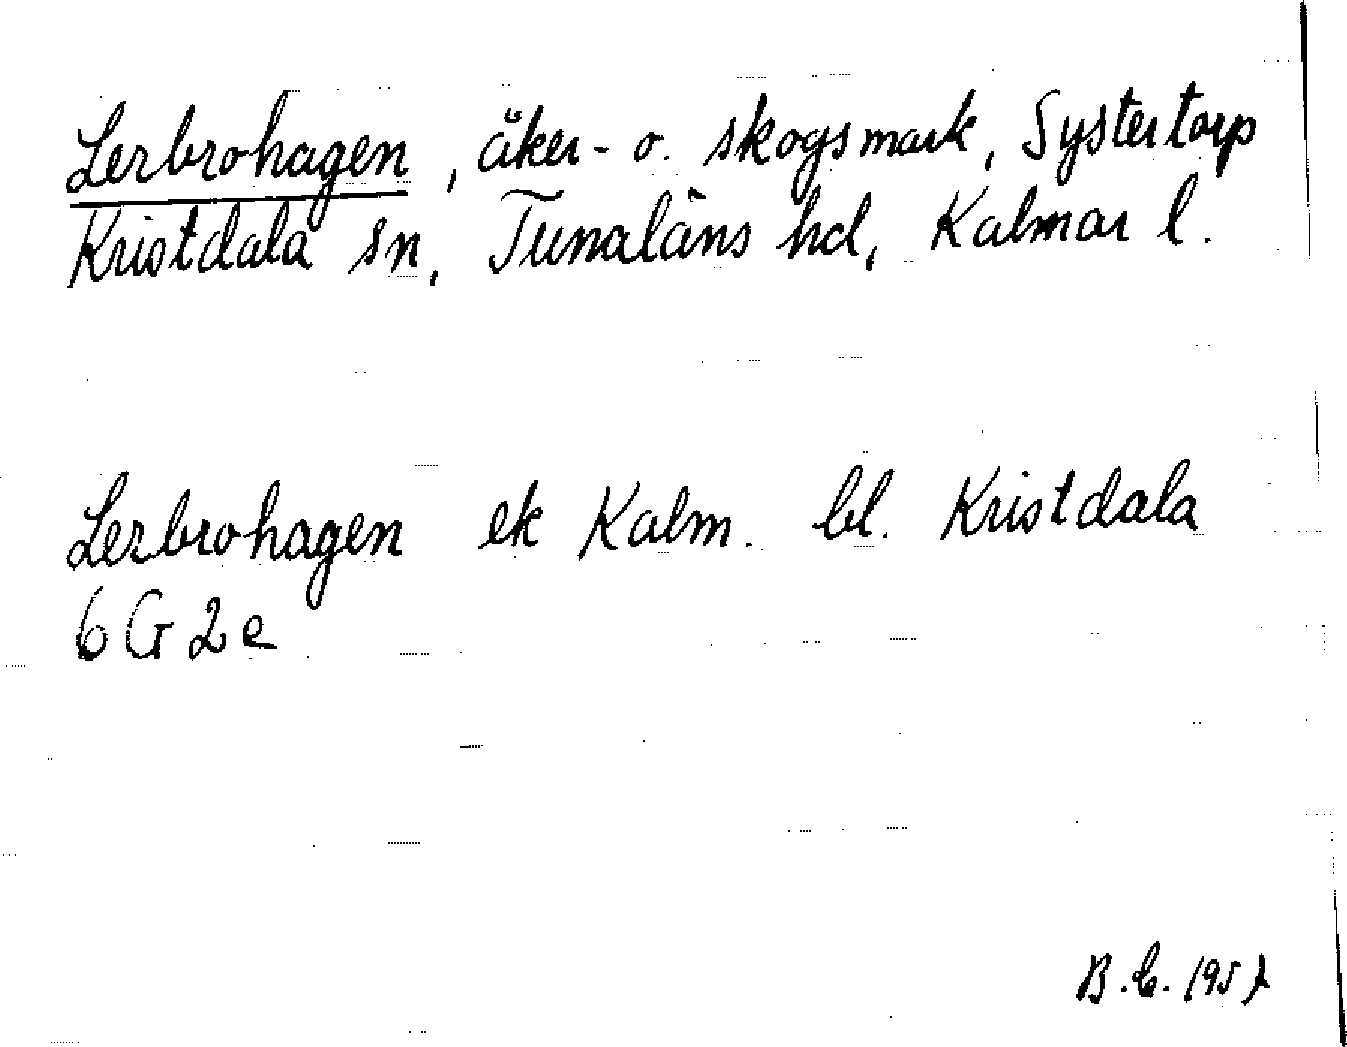 Lerbrohagen, åker- o. skogsmark, Systertorp
Kristdala sn, Tunaläns hd, Kalmar l.
Lerbrohagen ek Kalm. bl. Kristdala
6 G 2 e
B.C. 1957